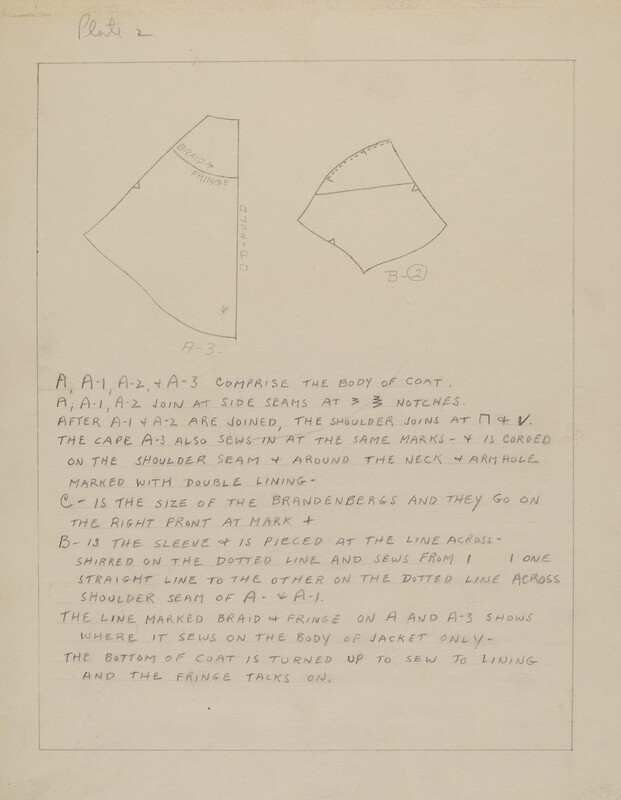 Plate 2
BRAID &
FRINGE
C B-FULD
A-3.
B-2
A, A-1, A-2, & A-3 COMPRISE THE BODY OF COAT.
A, A-1, A-2 JOIN AT SIDE SEAMS AT NOTCHES.
AFTER A-1 & A-2 ARE JOINED, THE SHOULDER JOINS AT Π & V.
THE CAPE A-3 ALSO SEWS IN AT THE SAME MARKS - & IS CORDED
ON THE SHOULDER SEAM & AROUND THE NECK & ARMHOLE
MARKED WITH DOUBLE LINING -
C - IS THE SIZE OF THE BRANDENBERGS AND THEY GO ON
THE RIGHT FRONT AT MARK +
B - IS THE SLEEVE & IS PIECED AT THE LINE ACROSS -
SHIRRED ON THE DOTTED LINE AND SEWS FROM I I ONE
STRAIGHT LINE TO THE OTHER ON THE DOTTED LINE ACROSS
SHOULDER SEAM OF A - & A-1.
THE LINE MARKED BRAID & FRINGE ON A AND A-3 SHOWS
WHERE IT SEWS ON THE BODY OF JACKET ONLY -
THE BOTTOM OF COAT IS TURNED UP TO SEW TO LINING
AND THE FRINGE TALKS ON.